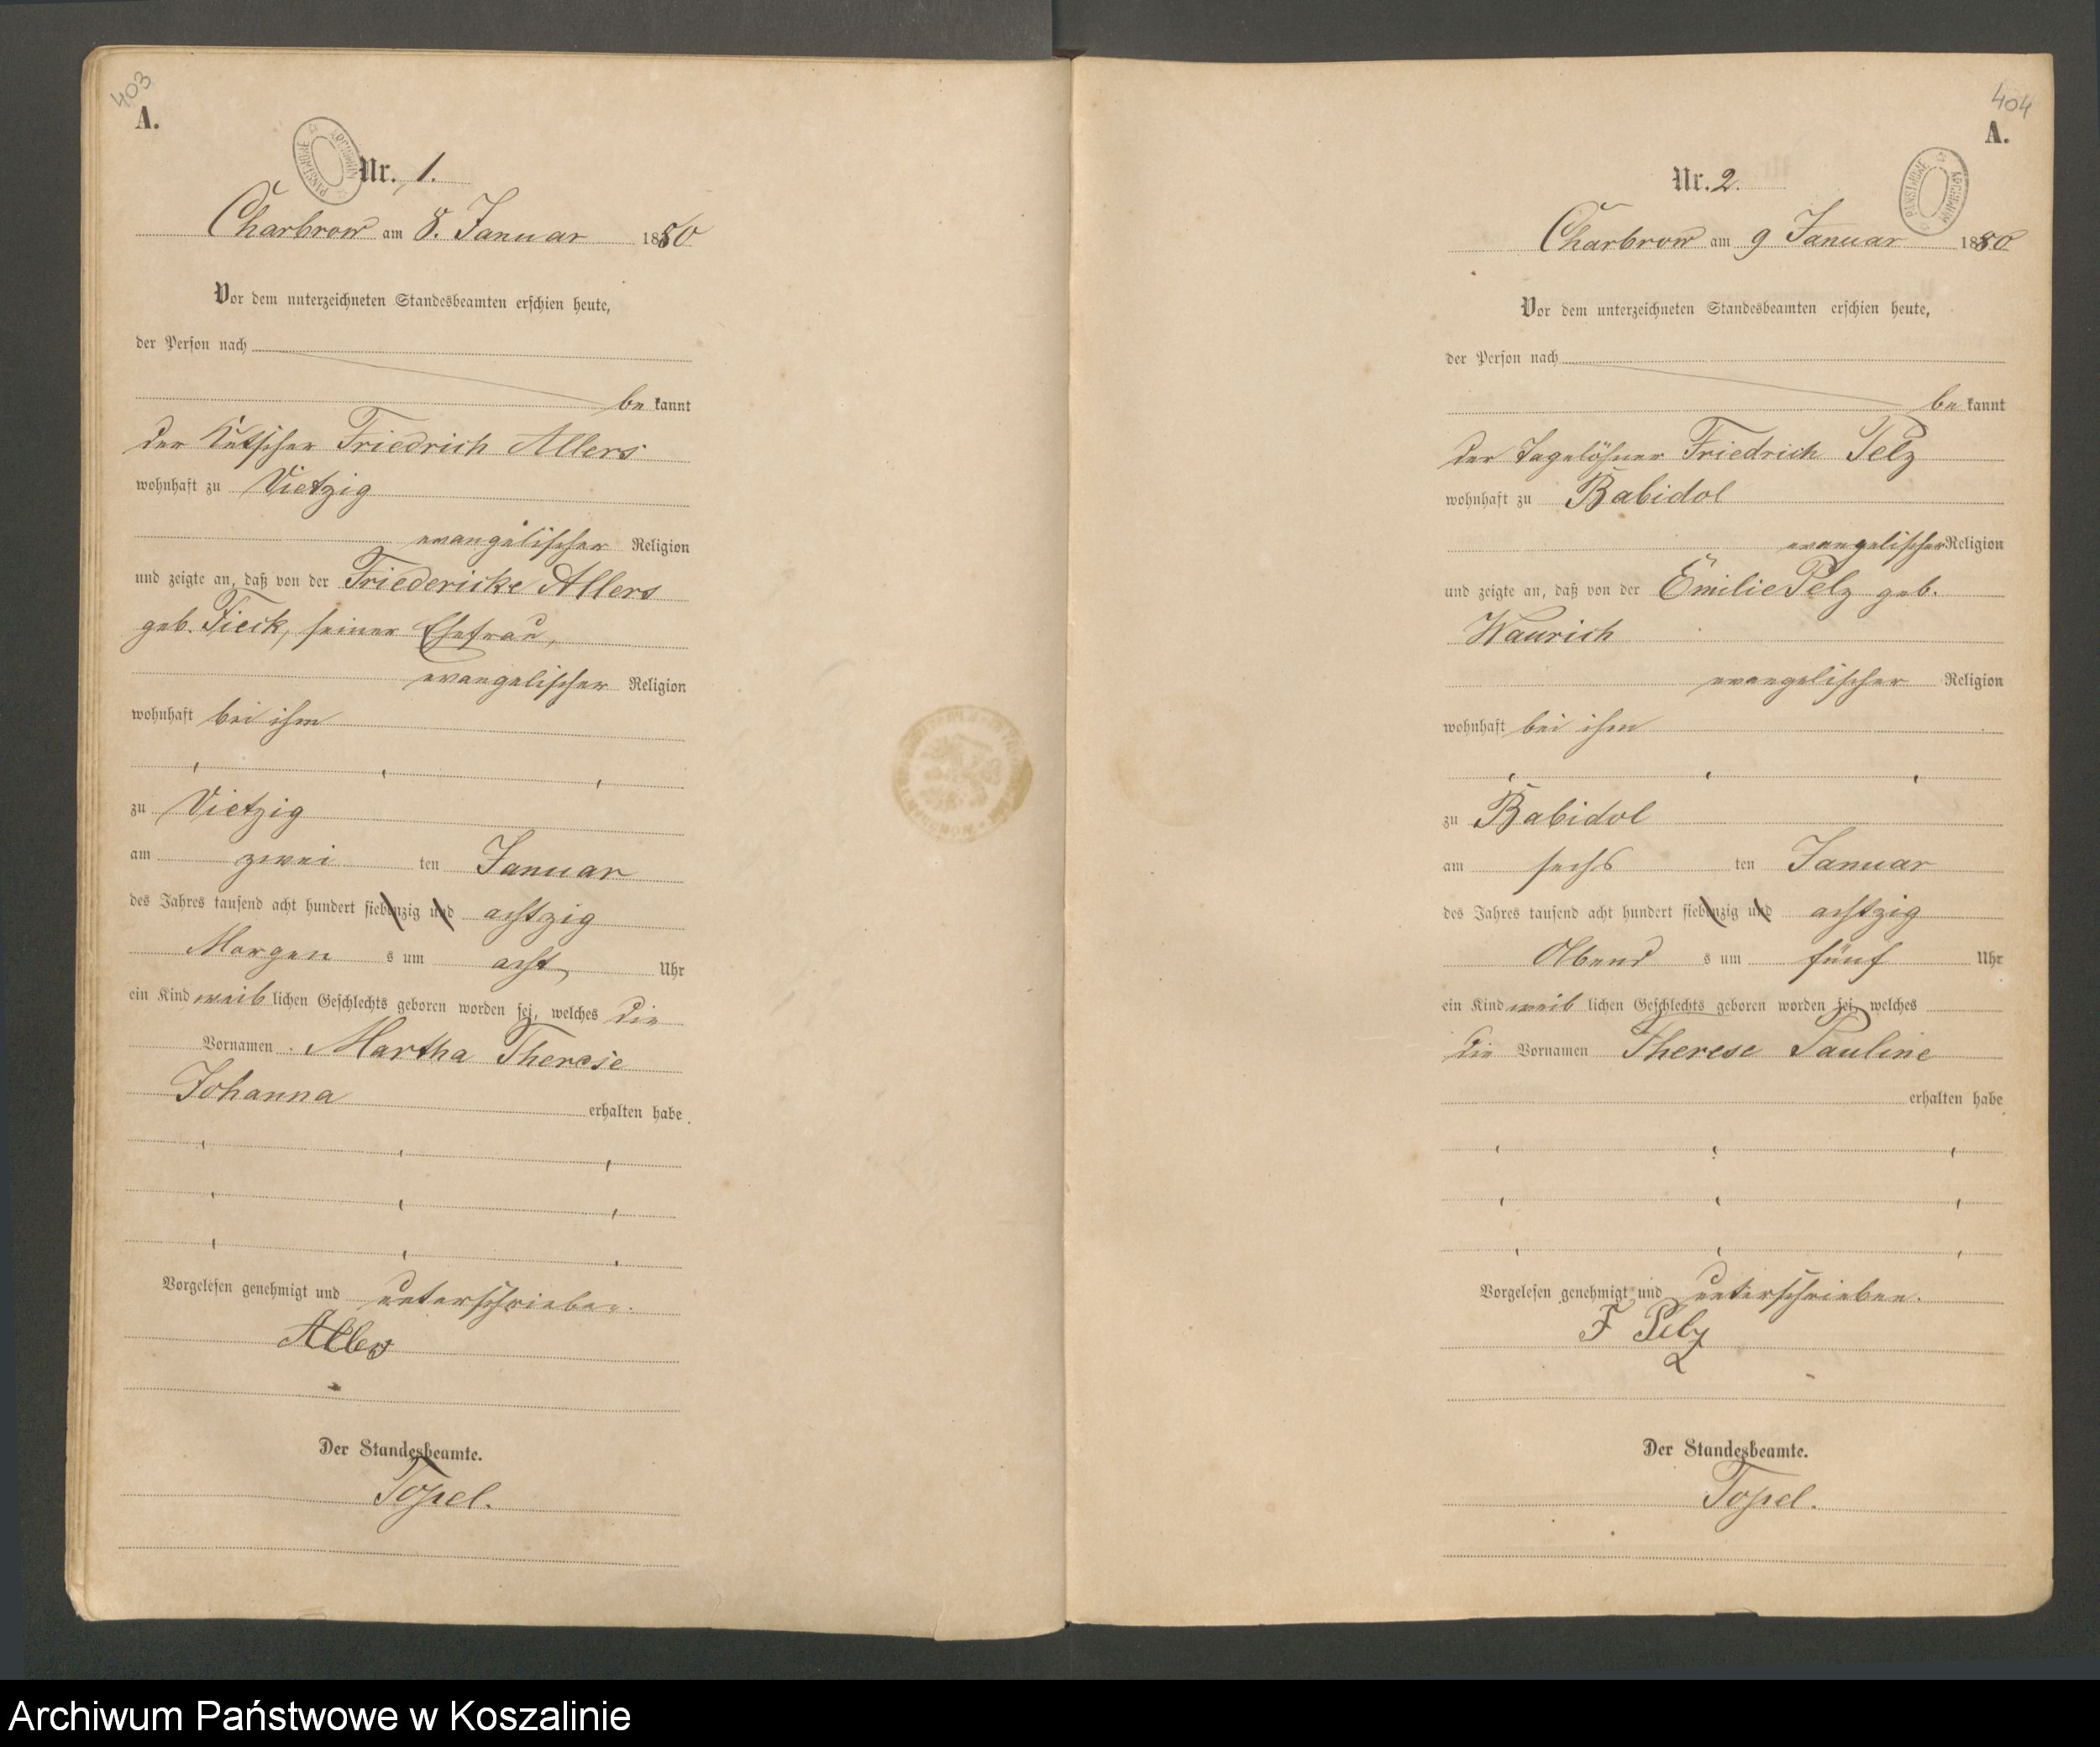 403
A.
ARCHIWUM PAŃSTWOWE
Nr. 1.
Charbrow am 8. Januar 1880
Vor dem unterzeichneten Standesbeamten erschien heute,
der Person nach
bekannt
der Kutscher Friedrich Allers
wohnhaft zu Vietzig
evangelischer Religion
und zeigte an, daß von der Friedericke Allers
geb. Fieck, seiner Ehefrau,
evangelischer Religion
wohnhaft bei ihm
zu Vietzig
am zwei ten Januar
des Jahres tausend acht hundert siebenzig und achtzig
Morgen s um acht Uhr
ein Kind weiblichen Geschlechts geboren worden sei, welches die
Vornamen Martha Therese
Johanna erhalten habe.
Vorgelesen genehmigt und unterschrieben.
Allers
Der Standesbeamte.
Topel.
404
A.
ARCHIWUM PAŃSTWOWE
Nr. 2.
Charbrow am 9 Januar 1880
Vor dem unterzeichneten Standesbeamten erschien heute,
der Person nach
bekannt
der Tagelöhner Friedrich Pelz
wohnhaft zu Babidol
evangelischer Religion
und zeigte an, daß von der Emilie Pelz geb.
Waurich
evangelischer Religion
wohnhaft bei ihm
zu Babidol
am sechs ten Januar
des Jahres tausend acht hundert siebenzig und achtzig
Abend s um fünf Uhr
ein Kind weib lichen Geschlechts geboren worden sei, welches
die Vornamen Therese Pauline
erhalten habe
Vorgelesen genehmigt und unterschrieben.
F Pelz
Der Standesbeamte.
Topel.
Archiwum Państwowe w Koszalinie